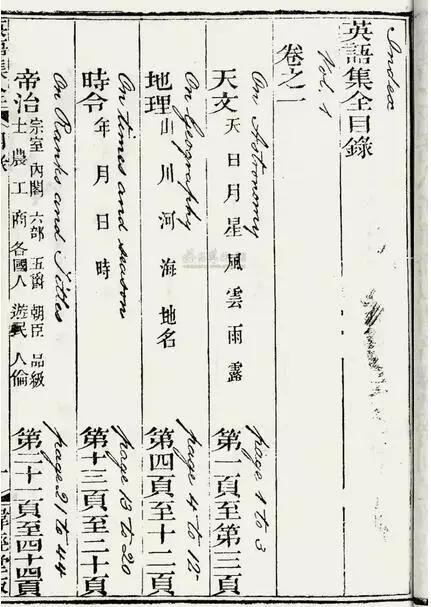 Index
英語集全目錄
Vol. 1
卷之一
On Astronomy page 1 to 3
天文 天日月星風雲雨露 第一頁至第三頁
On Geography page 4 to 12
地理 山川河海地名 第四頁至十二頁
On times and season page 13 to 20
時令 年月日時 第十三頁至二十頁
On Ranks and Titles page 21 to 44
帝治 宗室 內閣 六部 五爵 朝臣 品級 第二十一頁至四十四頁
士農工商 各國人 遊民 人倫